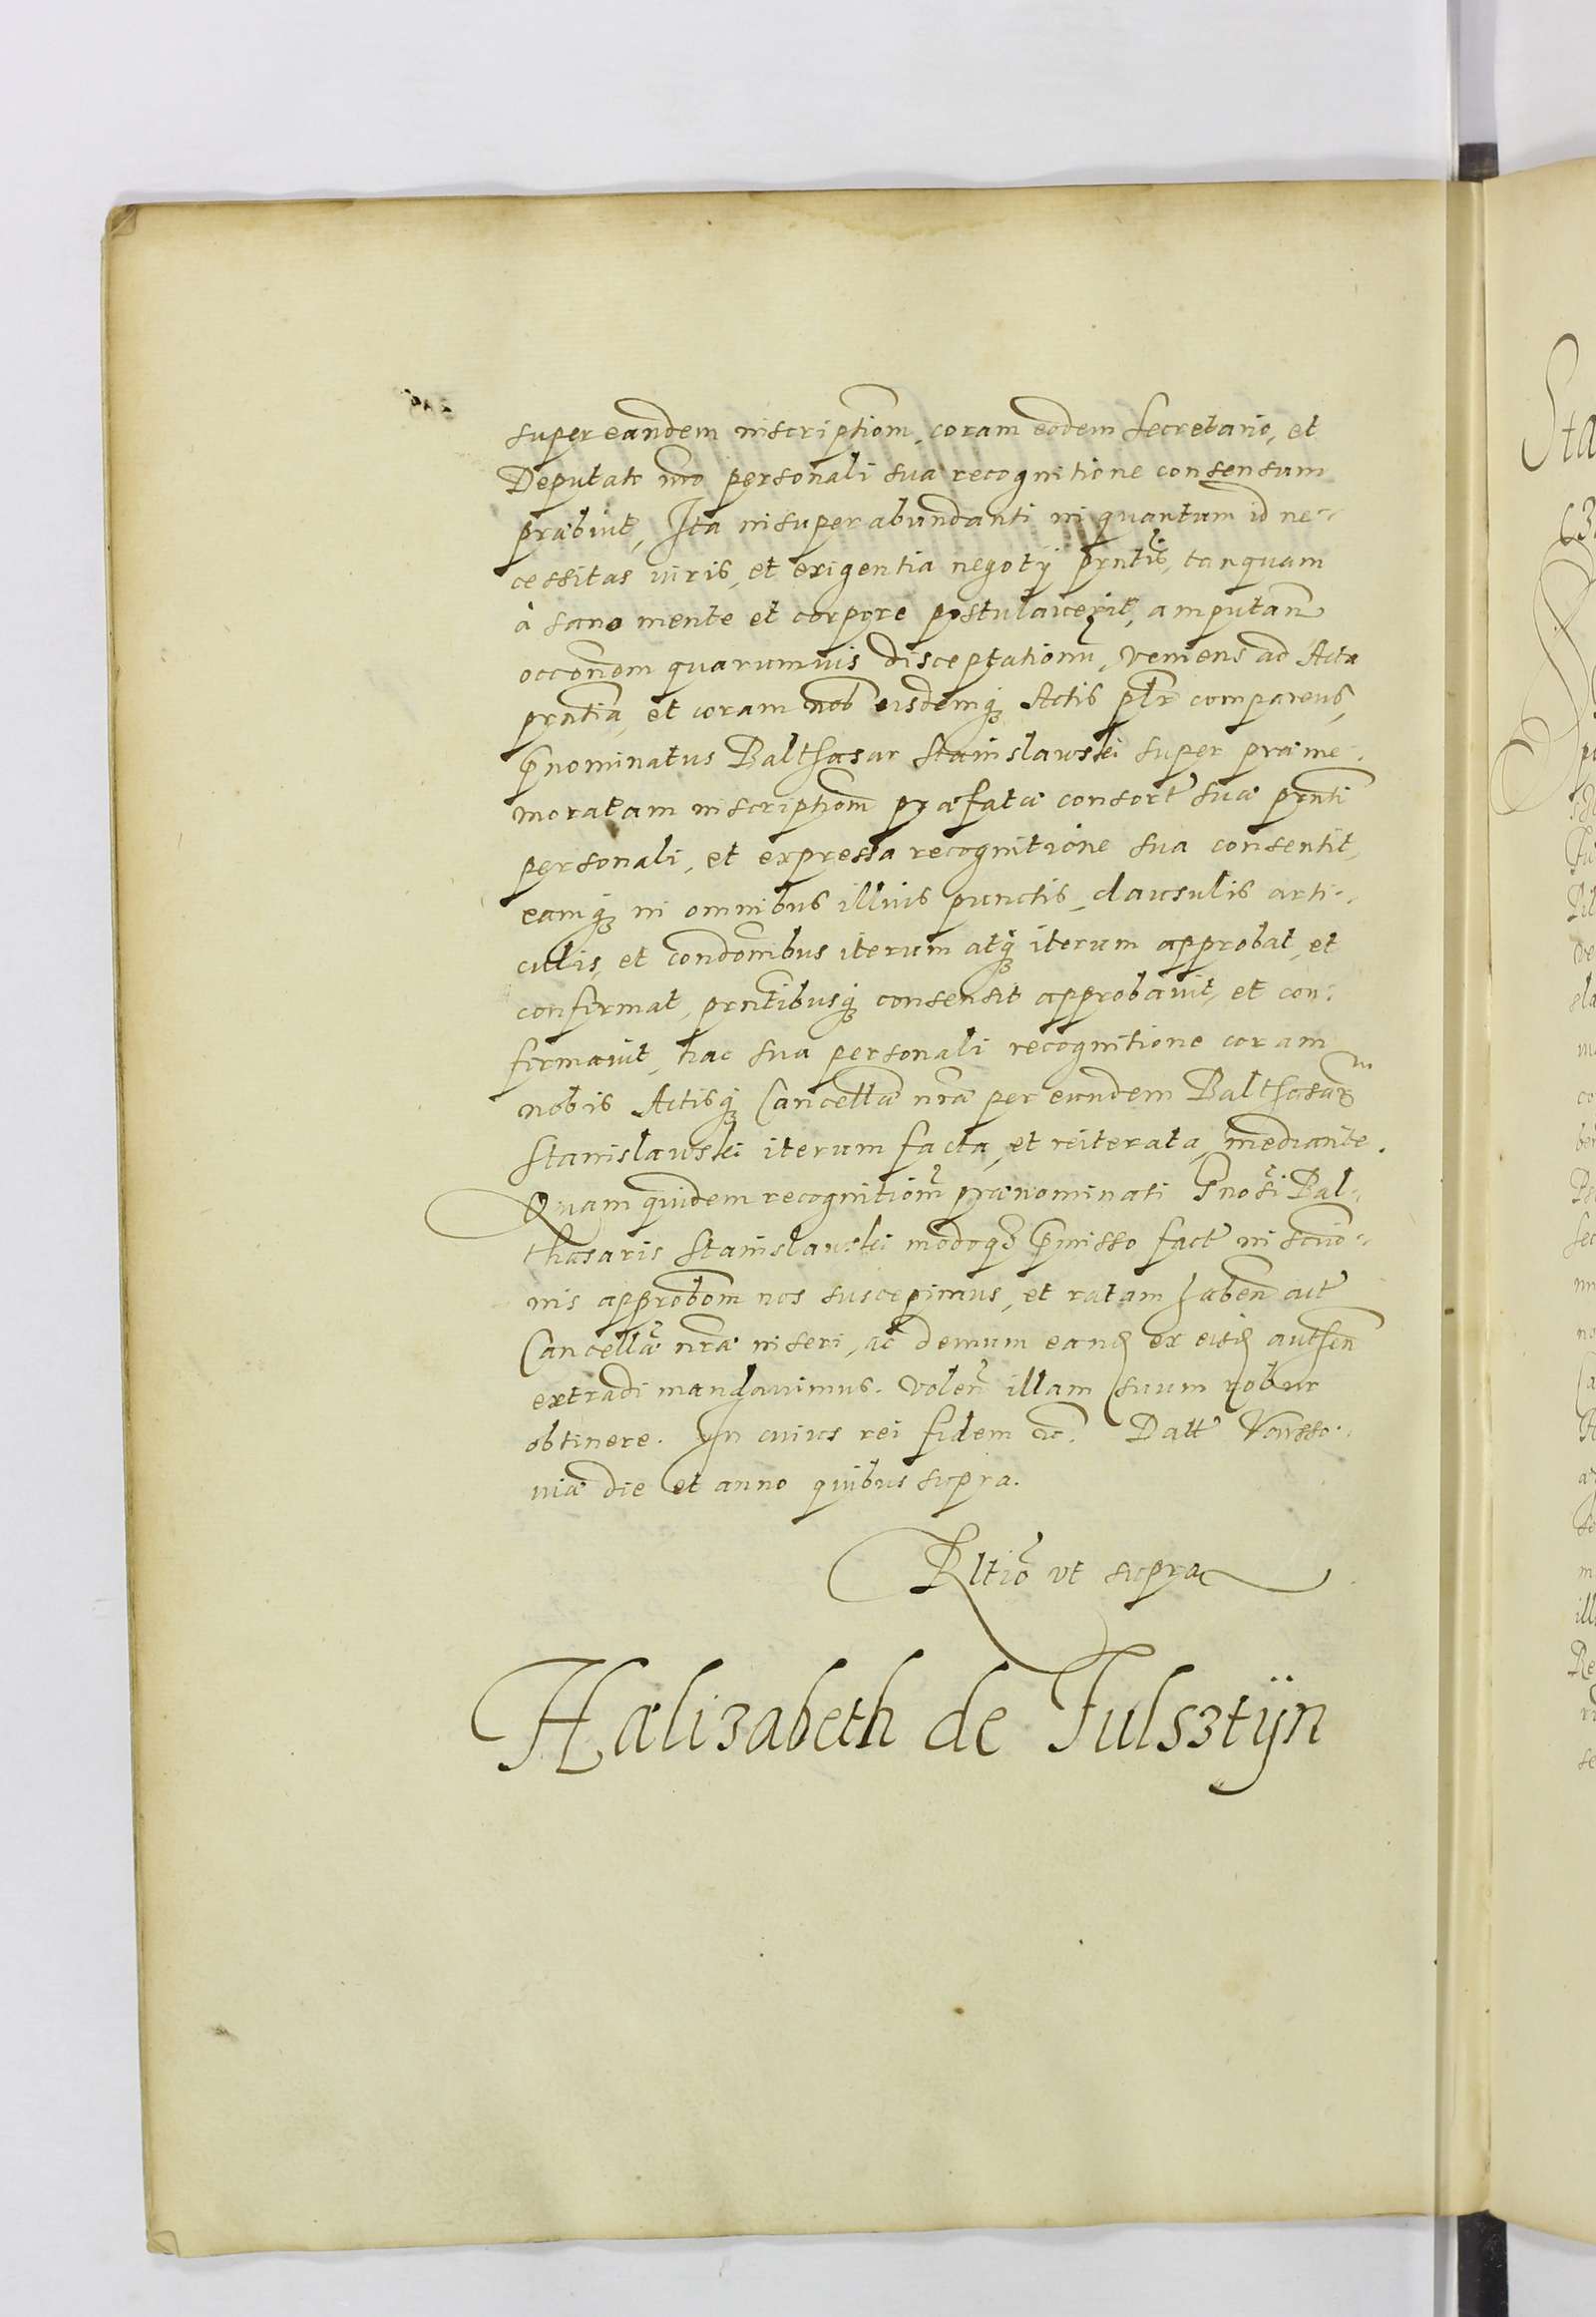 super eandem inscriptiōm, coram eodem Secretario, et
Deputato nrō personali sua recognitione consensum
præbuit, Ita insuper abundanti in quantum id ne-
cessitas iuris, et exigentia negotÿ prntis, tanquam
à sano mente et corpore postulaverit, amputan
occōnem quarumuis disceptationū, veniens ad Acta
prntia, et coram nob eisdemq3 Actis plr comparens,
Pnominatus Balthasar Stanislawski super præme-
moratam inscriptiōm præfatæ consort suæ prnti
personali, et expressa recognitione sua consentit,
eamq3 in omnibus illius punctis, clausulis arti-
culis, et condōnibus iterum atq3 iterum approbat, et
confirmat, prntibusq3 consensit approbavit, et con-
firmavit, hac sua personali recognitione coram
nobis Actisq3 Cancellæ nræ per eundem Balthasarem
Stanislawski iterum facta, et reiterata, mediante.
Quam quidem recognitiōm prænominati Gnosi Bal-
thasaris Stanislawski modoq3 Pmisso fact
nis approbōm nos suscepimus, et ratam haben act
Cancellæ nræ inseri, ac demum eand ex eisd authen
extradi mandavimus. Volen illam suum robur
obtinere. In cuius rei fidem &c. Datt Varsso-
uiæ die et anno quibus supra.
Rltiō vt supra
Hælizabeth de Fulsztÿn
Sta